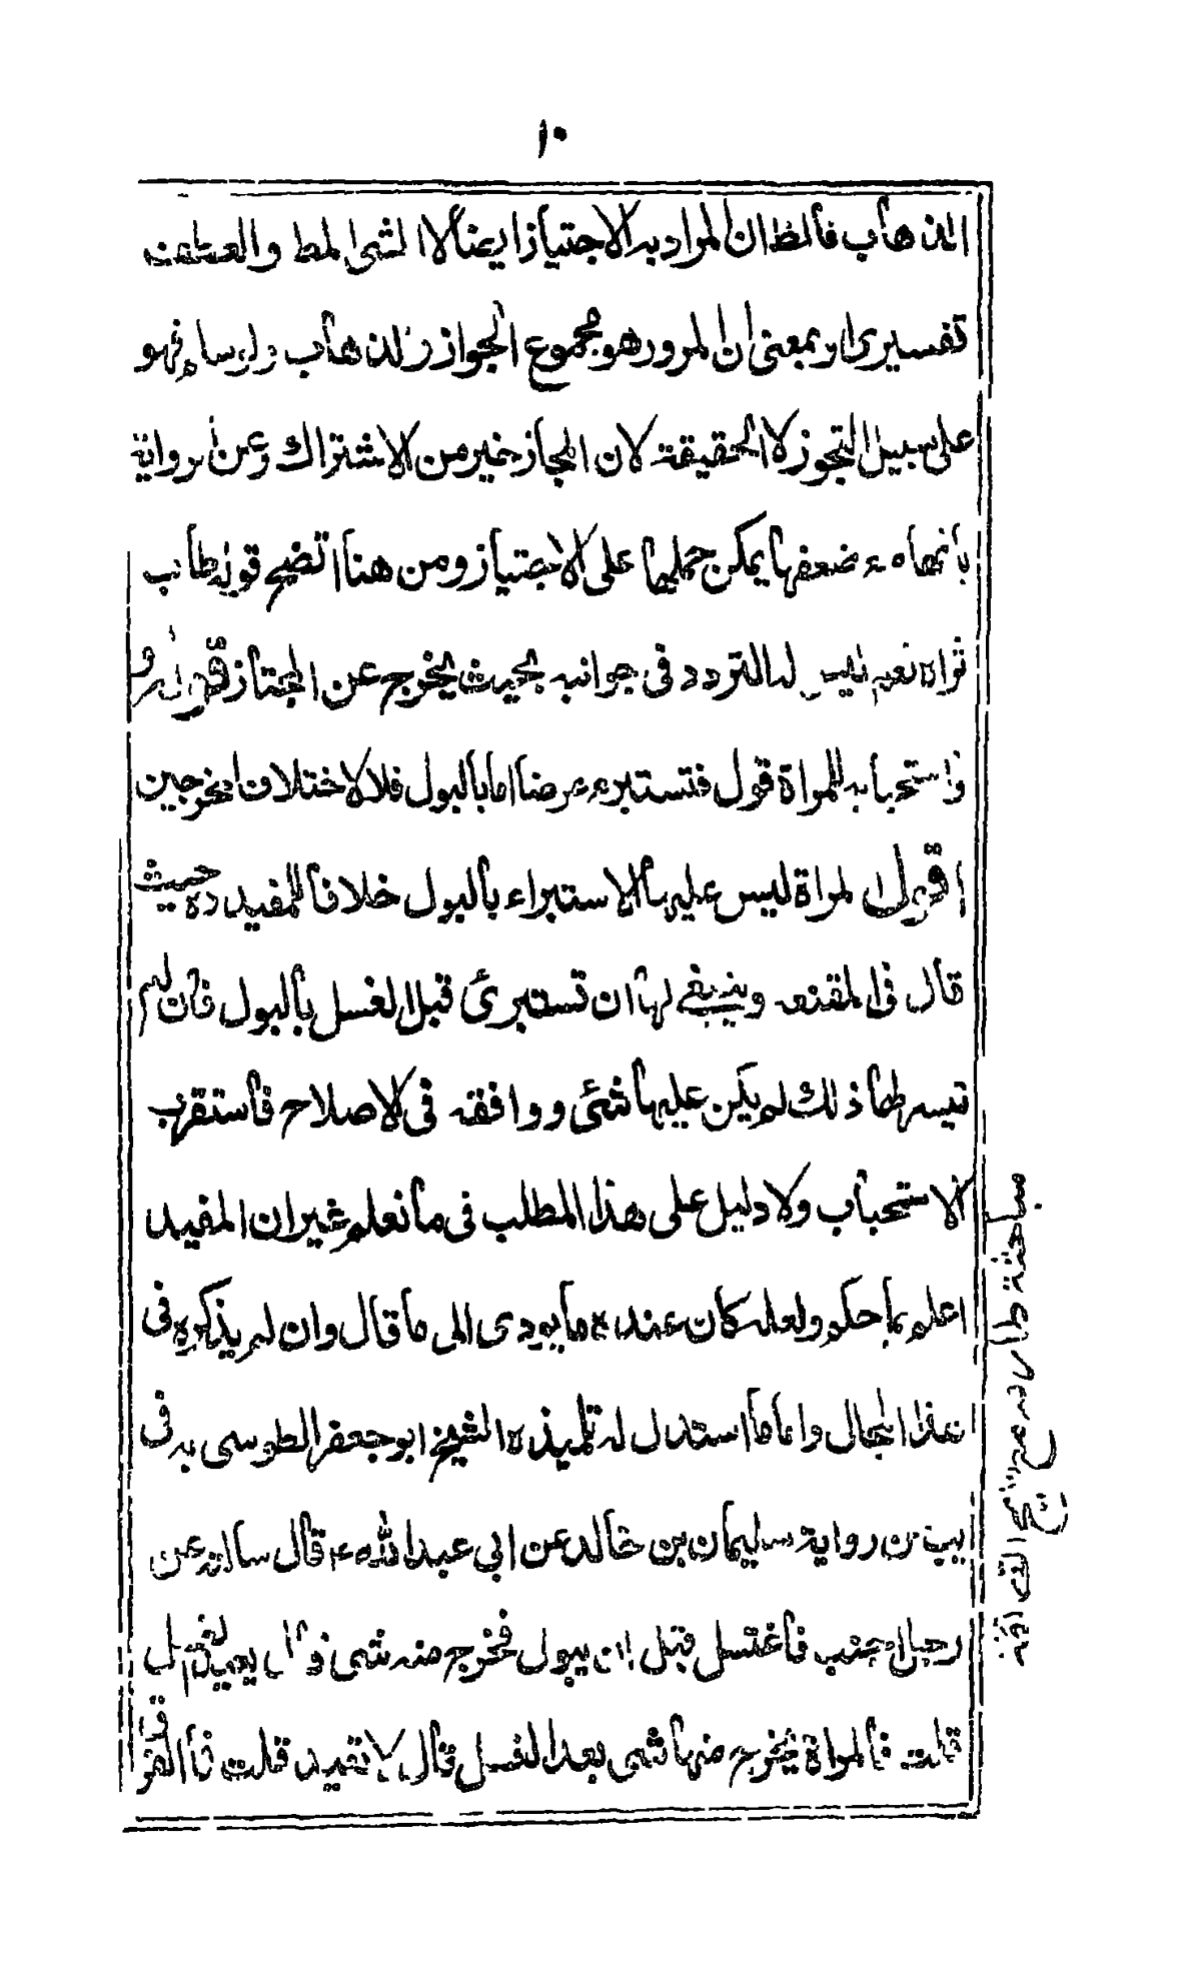 ١٠
الذهاب فالظ ان المراد به الاجتياز ايضا لا الشى المط والعطف
تفسيرى او بمعنى ان المرور هو مجموع الجواز والذهاب فهو
على سبيل التجوز لا الحقيقة لان المجاز خير من الاشتراك وعن الرواية
بانها مع ضعفها يمكن حملها على الاجتياز ومن هنا اتضح قوله طاب
ثراه نعم ليس له التردد فى جوانبه بحيث يخرج عن المجتاز قوله
واستحبابه للمراة قول فتستبرء عرضا اما بالبول فلا لاختلاف المخرجين
اقول المراة ليس عليها الاستبراء بالبول خلافا للمفيد ره حيث
قال فى المقنعه وينبغى لها ان تستبرئ قبل الغسل بالبول فان لم
تيسر لها ذلك لم يكن عليها شئى ووافقه فى الاصلاح فاستقرب
الاستحباب ولا دليل على هذا المطلب فى ما نعلم غير ان المفيد
اعلم بما حكم ولعله كان عنده ما يودى الى ما قال وان لم يذكره فى
هذا المجال واما ما استدل له تلميذه الشيخ ابو جعفر الطوسى به فى
يب من رواية سليمان بن خالد عن ابى عبد الله ع قال سالته عن
رجل اجنب فاغتسل قبل ان يبول فخرج منه شى قال يعيد الغسل
قلت فالمراة يخرج منها شى بعد الغسل قال لا تعيد قلت فما الفرق